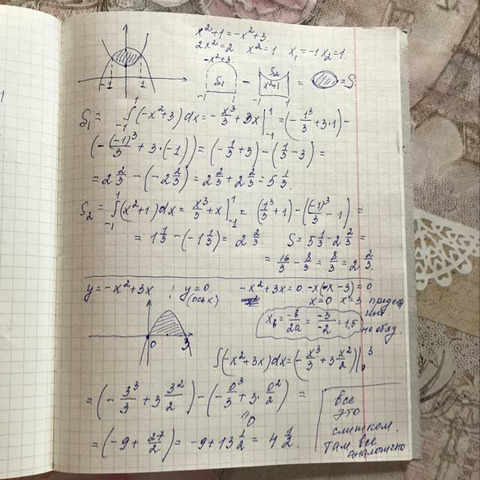 x²+1 = -x²+3
2x²=2 x²=1 x₁=-1 x₂=1
-x²+3
S₁ - S₂ = = S
x²+1
-1 1 -1 1
-1 1
S₁ = ∫₋₁¹(-x²+3)dx = -x³/3 + 3x |₋₁¹ = (-1³/3 + 3·1) -
(-(-1)³/3 + 3·(-1)) = (-1/3+3) - (1/3-3) =
= 2 2/3 - (-2 2/3) = 2 2/3 + 2 2/3 = 5 1/3.
S₂ = ∫₋₁¹(x²+1)dx = x³/3 + x |₋₁¹ = (1³/3+1) - ((-1)³/3 - 1) =
= 1 1/3 - (-1 1/3) = 2 2/3 S = 5 1/3 - 2 2/3 =
= 16/3 - 8/3 = 8/3 = 2 2/3.
y = -x²+3x ; y=0 -x²+3x=0 -x(x-3)=0
(ось x) x=0 x=3
xв = -b/2a = -3/-2 = 1,5 не обяз
0 3
∫(-x²+3x)dx = (-x³/3 + 3x²/2) |₀³
= (-3³/3 + 3 3²/2) - (-0³/3 + 3·0²/2) =
0
= (-9 + 27/2) = -9 + 13 1/2 = 4 1/2.
все
это
слишком.
Там все
аналогично